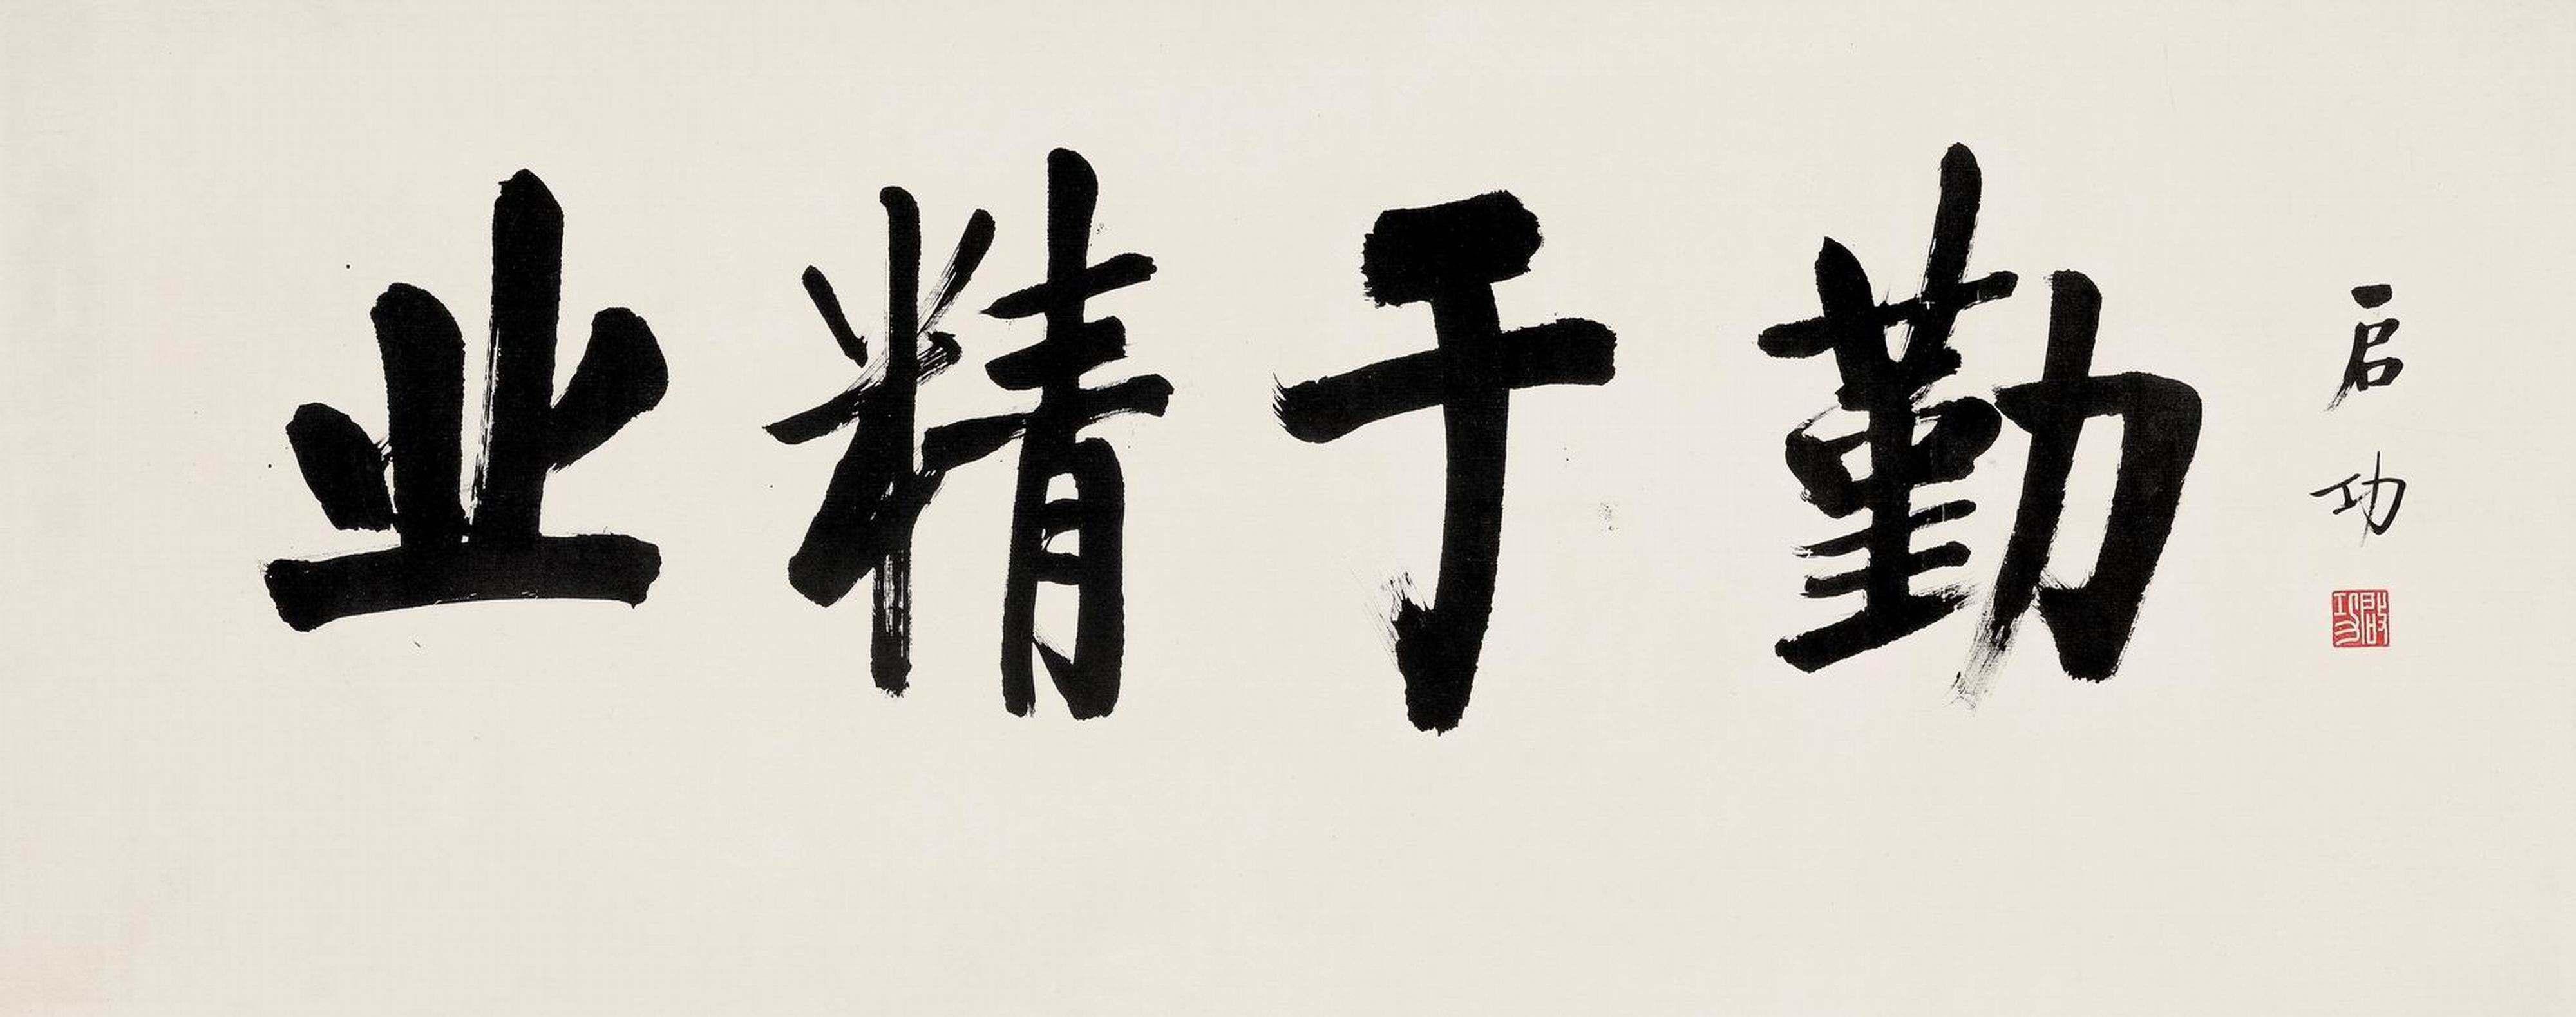 业精于勤
启功
启功